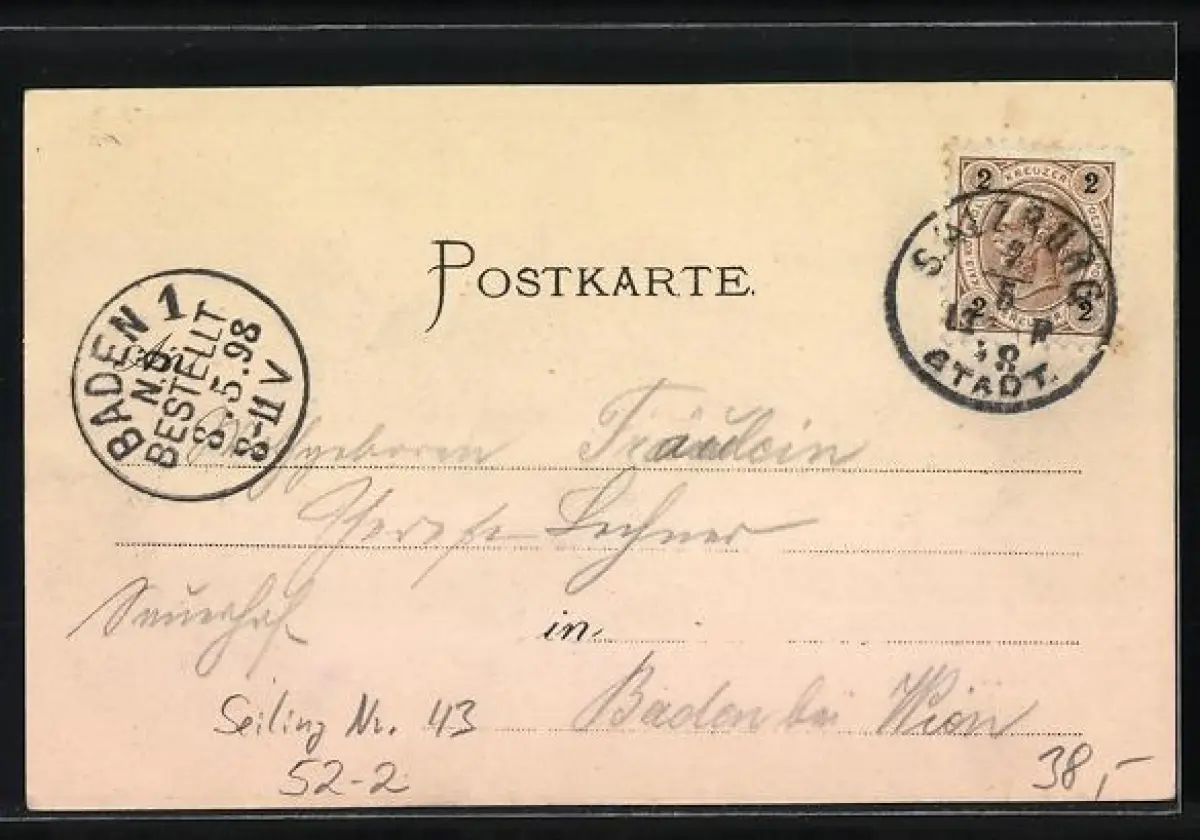 2 KREUZER 2
SALZBURG
7/5
98
STADT.
2 KREUZER 2
POSTKARTE.
BADEN 1
N.Ö.
BESTELLT
8.5.98
8-11 V
Hochgeboren Fräulein
Therese Lechner
Sauerhof in
Baden bei Wien
Seiling Nr. 43
52-2
38,-